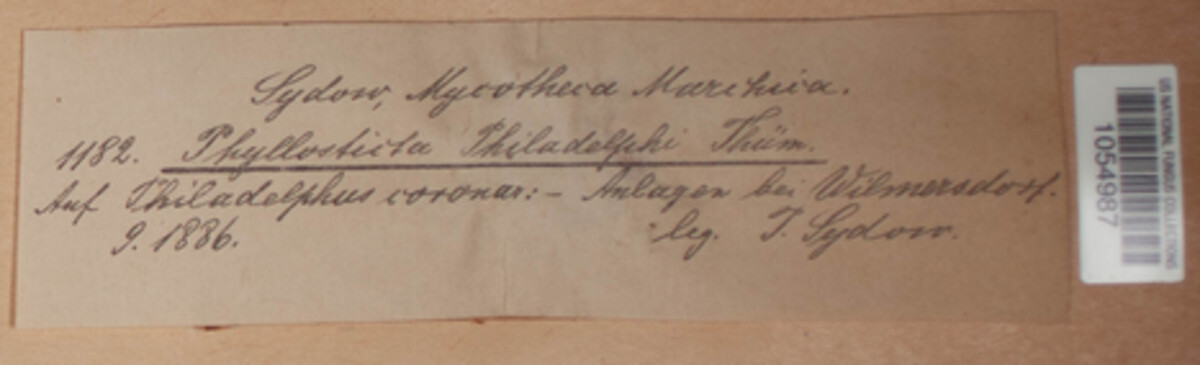 Sydow, Mycotheca Marchica.
1182. Phyllosticta Philadelphi Thüm.
Auf Philadelphus coronar: – Anlagen bei Wilmersdorf.
9. 1886. leg. P. Sydow.
US NATIONAL FUNGUS COLLECTIONS
1054987